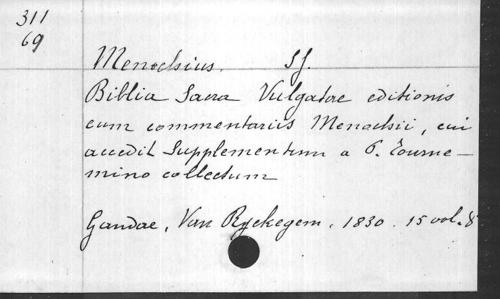 311
69
Menochius. Sf.
Biblia Sacra Vulgatae editionis
cum commentariis Menochii, cui
accedit Supplementum a P. Tourne-
mino collectum
Gandae, Van Ryckegem, 1830. 15 vol. 8